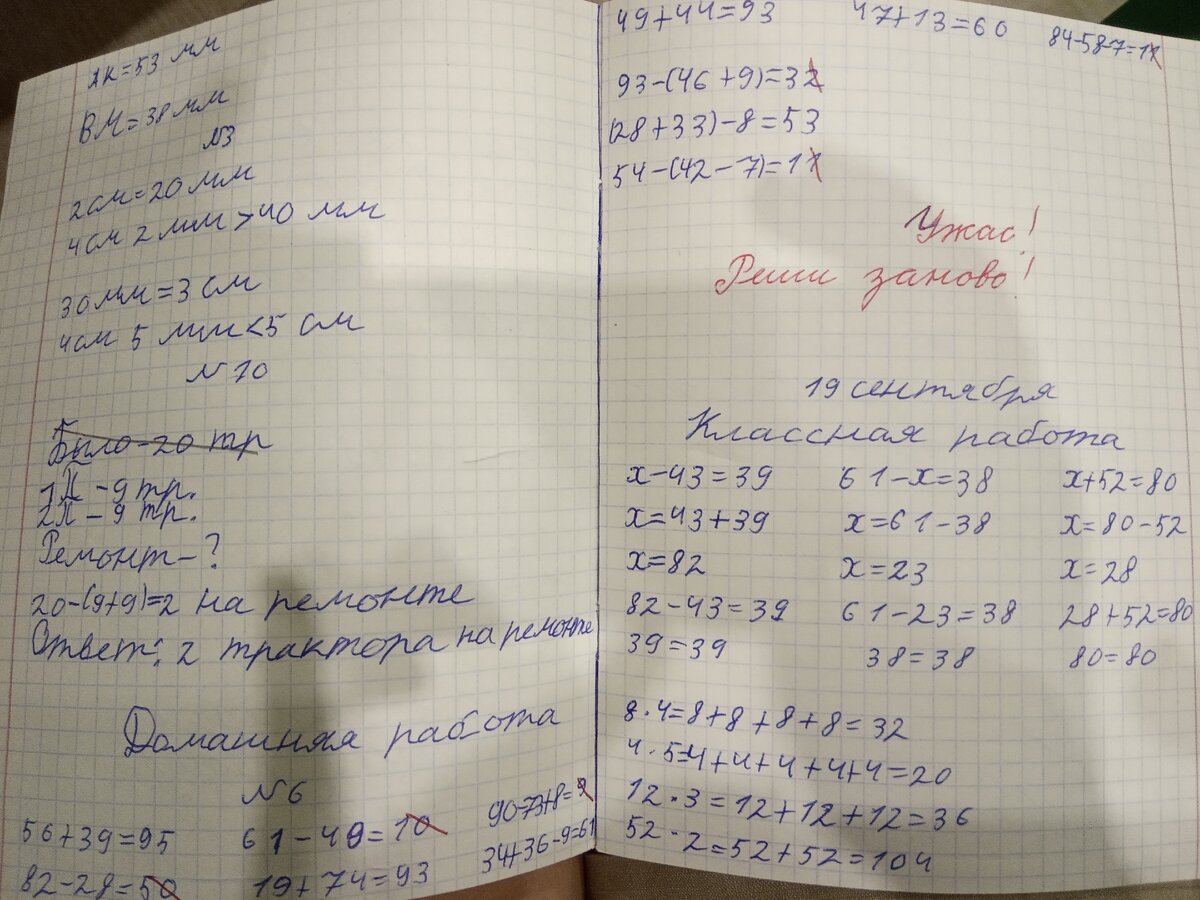 АК=53 мм
ВМ=38 мм
№3
2см=20 мм
4см 2 мм>40 мм
30мм=3 см
4см 5 мм<5 см
№10
Было-20 тр
1П-9 тр.
2П-9 тр.
Ремонт-?
20-(9+9)=2 на ремонте
Ответ: 2 трактора на ремонте
Домашняя работа
№6
56+39=95 61-49=10 90-73+8=9
82-28=50 19+74=93 34+36-9=61
49+44=93 47+13=60 84-58-7=11
93-(46+9)=32
(28+33)-8=53
54-(42-7)=11
Ужас!
Реши заново!
19 сентября
Классная работа
х-43=39 61-х=38 х+52=80
х=43+39 х=61-38 х=80-52
х=82 х=23 х=28
82-43=39 61-23=38 28+52=80
39=39 38=38 80=80
8·4=8+8+8+8=32
4·5=4+4+4+4+4=20
12·3=12+12+12=36
52·2=52+52=104